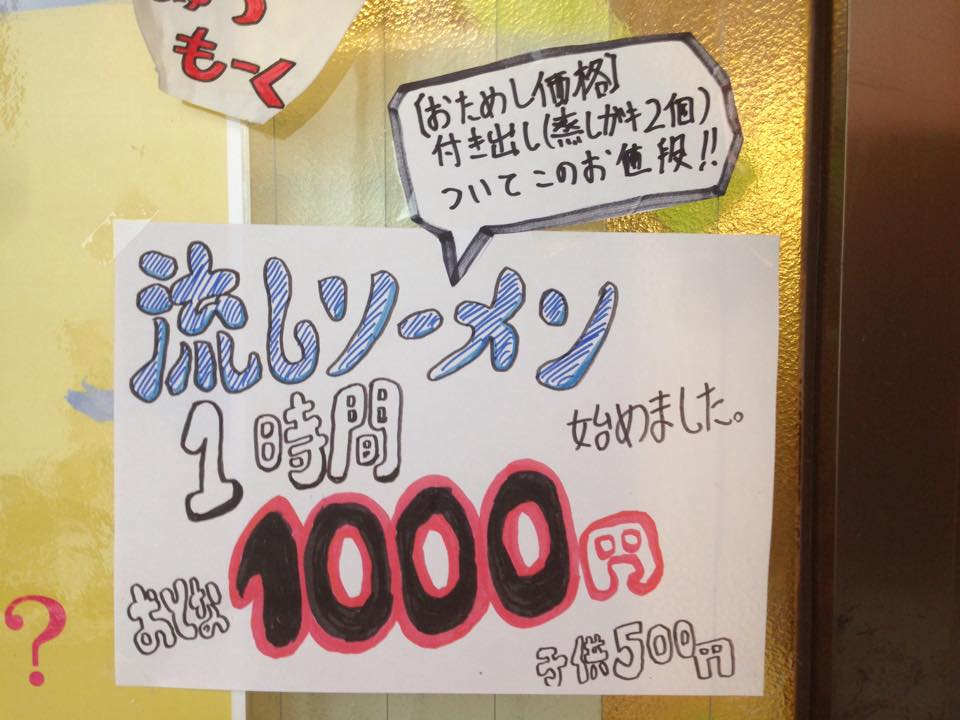 もーく
【おためし価格】
付き出し(蒸しガキ2個)
ついてこのお値段!!
流しソーメン
1時間
始めました。
おとな1000円
子供500円
?